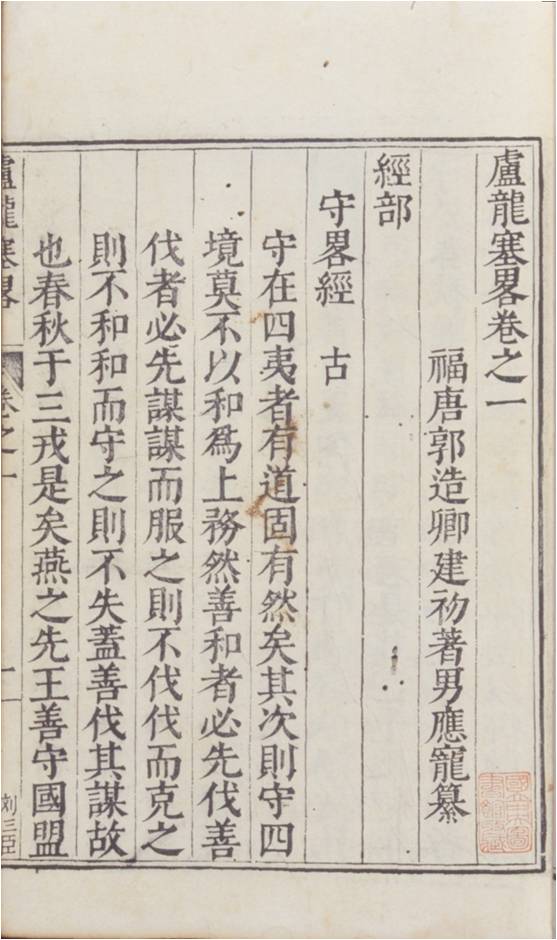 盧龍塞畧卷之一
福唐郭造卿建初著男應寵纂
經部
守畧經　古
守在四夷者有道固有然矣其次則守四
境莫不以和爲上務然善和者必先伐善
伐者必先謀謀而服之則不伐伐而克之
則不和和而守之則不失蓋善伐其謀故
也春秋于三戎是矣燕之先王善守國盟
盧龍塞畧　卷之一　一　刘三臣